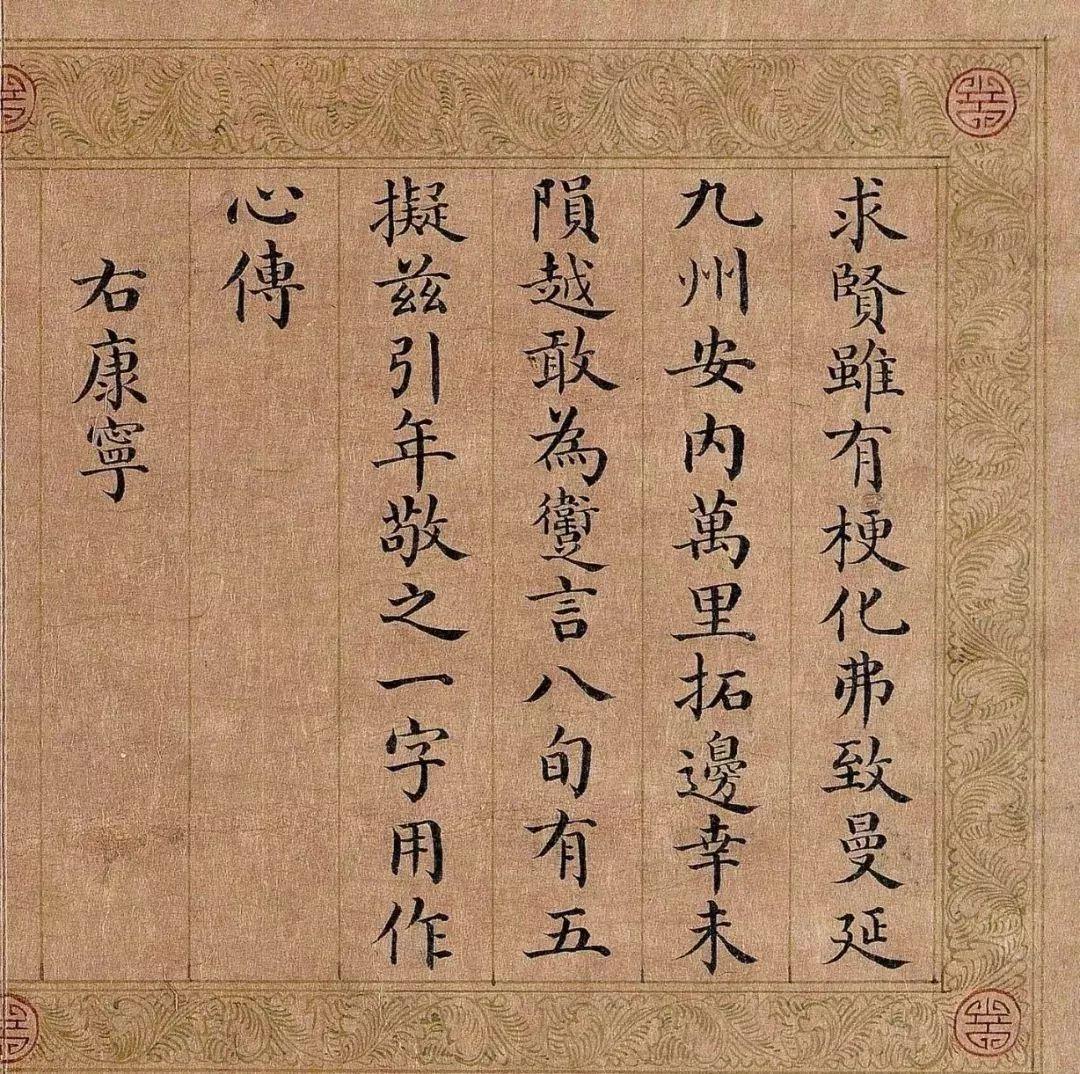 求賢雖有梗化弗致曼延
九州安內萬里拓邊幸未
隕越敢為躗言八旬有五
擬兹引年敬之一字用作
心傳
右康寧